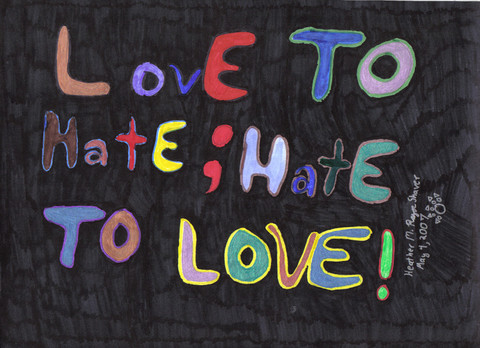 LovE TO
HatE ; HatE
TO LOVE!
Heather M. Shaver
May 2007